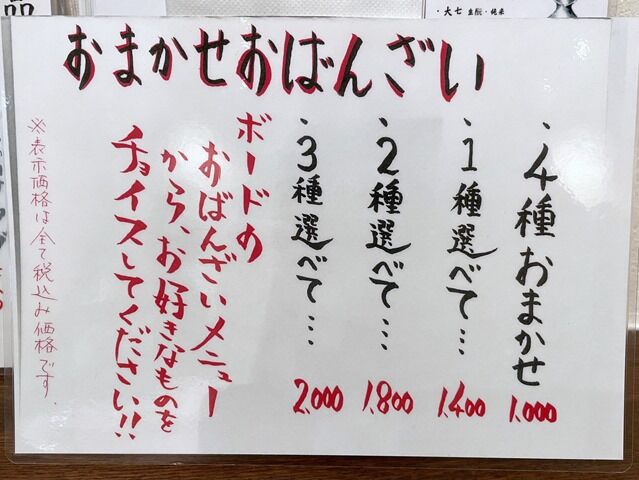 大七 生酛・純米
品
おまかせおばんざい
・4種おまかせ 1,000
・1種選べて… 1,400
・2種選べて… 1,800
・3種選べて… 2,000
ボードの
おばんざいメニュー
から、お好きなものを
チョイスしてください!!
※表示価格は全て税込み価格です。